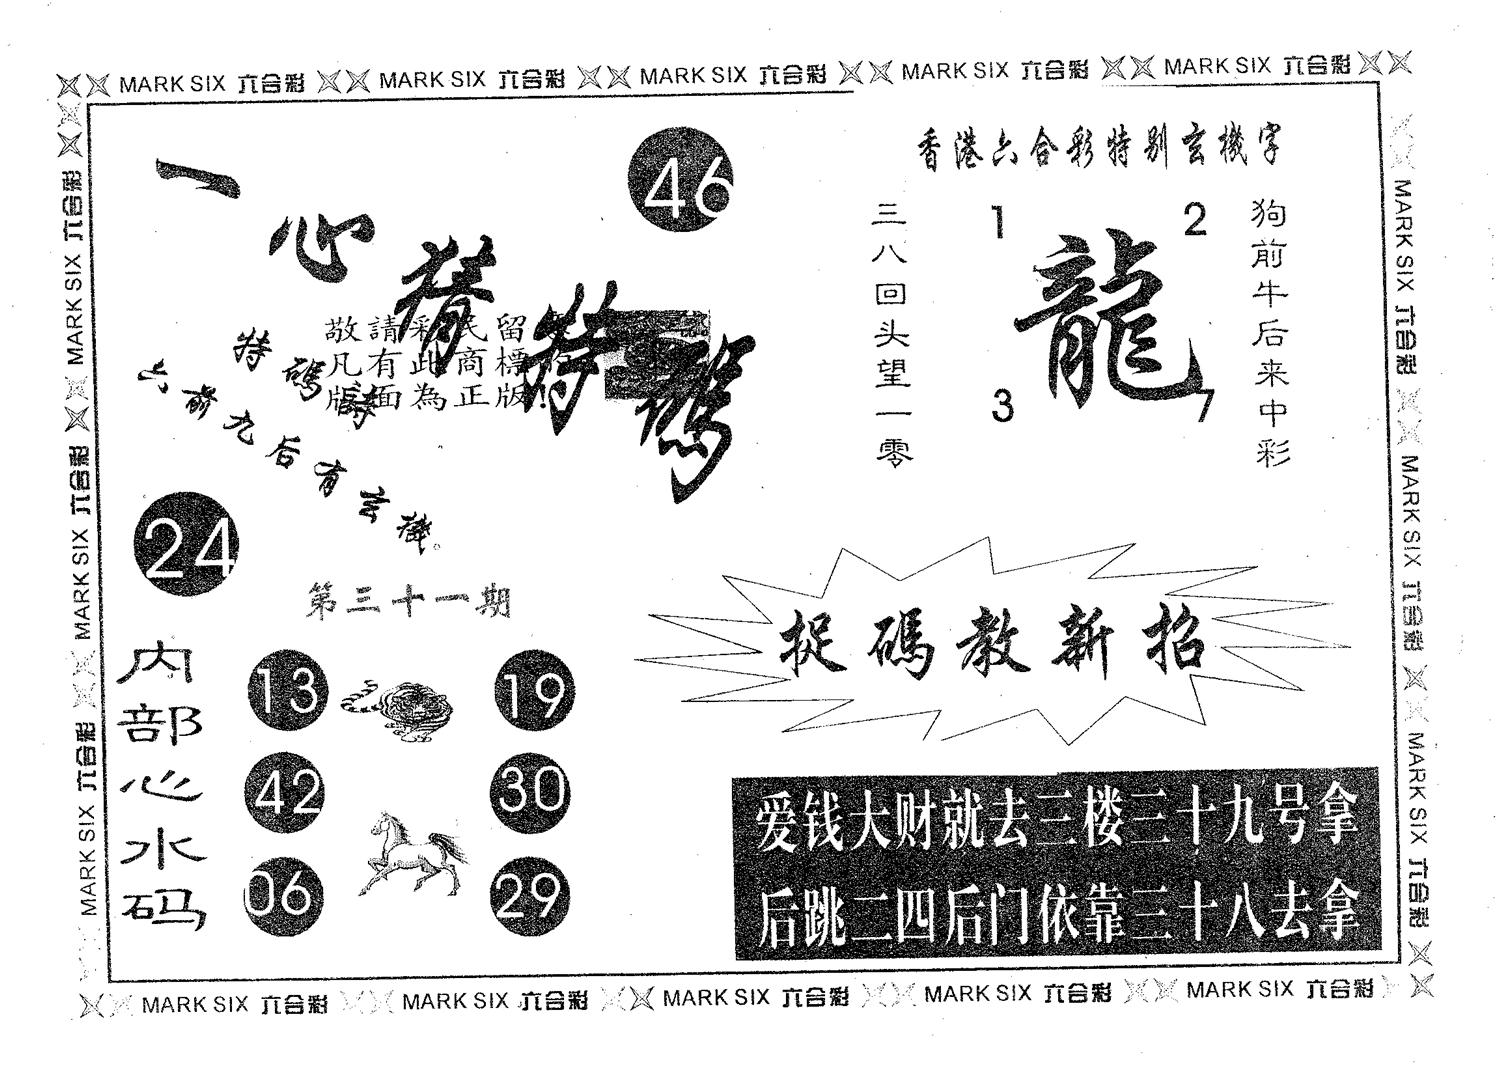 MARK SIX 六合彩 MARK SIX 六合彩 MARK SIX 六合彩 MARK SIX 六合彩 MARK SIX 六合彩
MARK SIX 六合彩 MARK SIX 六合彩 MARK SIX 六合彩
一心猜特碼
46
敬請彩民留
凡有此商標
版面為正版!
特碼詩
六前九后有玄機。
24
第三十一期
内部心水码
13 19
42 30
06 29
香港六合彩特别玄機字
三八回头望一零
1 2
龍
3 7
狗前牛后来中彩
捉碼教新招
爱钱大财就去三楼三十九号拿
后跳二四后门依靠三十八去拿
MARK SIX 六合彩 MARK SIX 六合彩 MARK SIX 六合彩
MARK SIX 六合彩 MARK SIX 六合彩 MARK SIX 六合彩 MARK SIX 六合彩 MARK SIX 六合彩